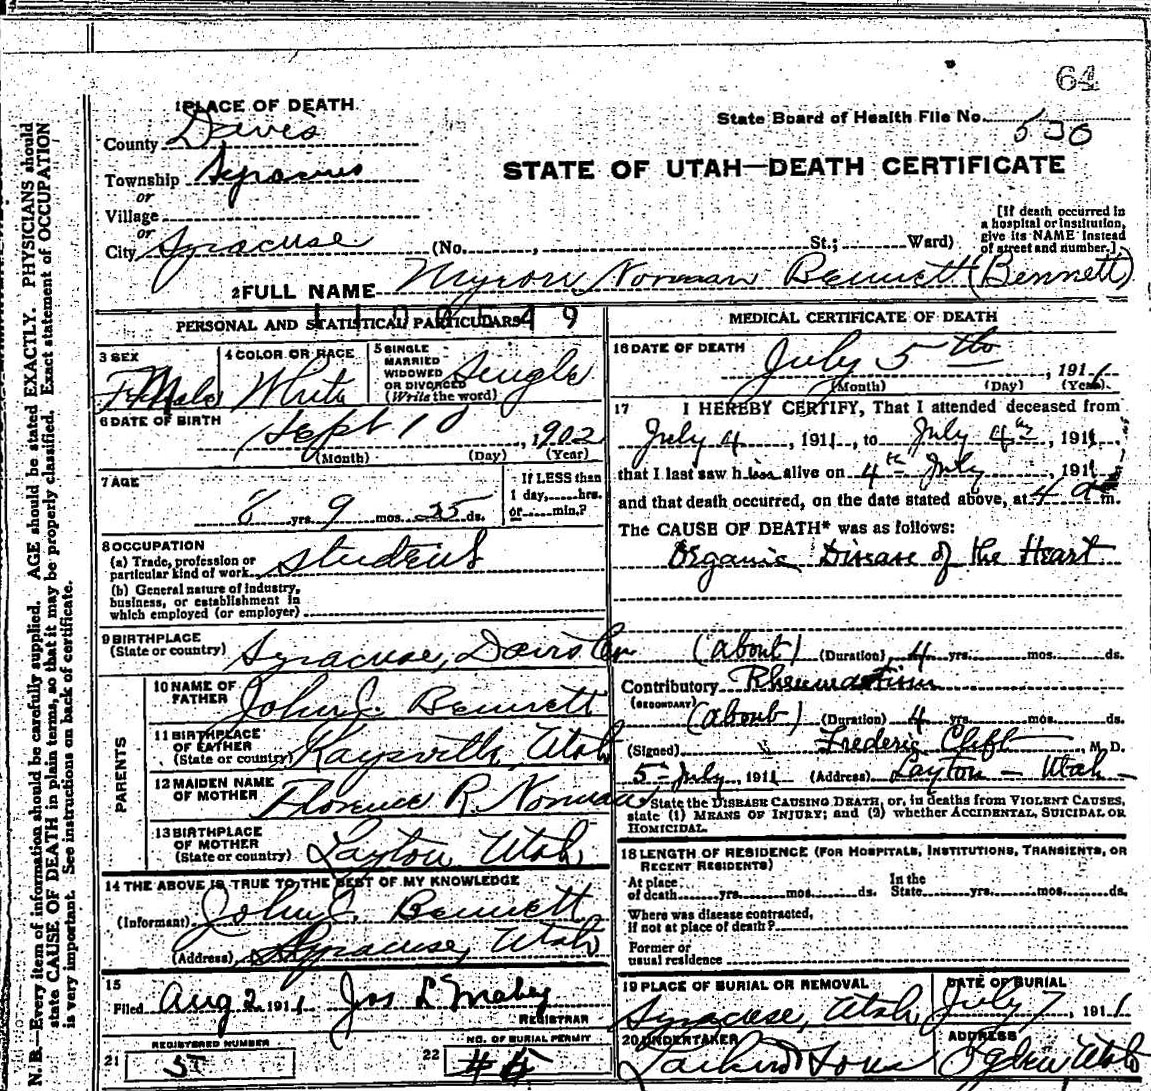 64
1 PLACE OF DEATH
State Board of Health File No. 530
County Daves
STATE OF UTAH—DEATH CERTIFICATE
Township Syracuse
or
Village
or
City Syracuse (No. , St.; Ward)
[If death occurred in
a hospital or institution,
give its NAME instead
of street and number.]
2 FULL NAME Myron Norman Bennett (Bennett)
PERSONAL AND STATISTICAL PARTICULARS
3 SEX Male
4 COLOR OR RACE White
5 SINGLE
MARRIED
WIDOWED
OR DIVORCED
(Write the word) Single
6 DATE OF BIRTH
Sept 10, 1902
(Month) (Day) (Year)
7 AGE
8 yrs. 9 mos. 25 ds.
If LESS than
1 day, hrs.
or min.?
8 OCCUPATION
(a) Trade, profession or
particular kind of work Student
(b) General nature of industry,
business, or establishment in
which employed (or employer)
9 BIRTHPLACE
(State or country) Syracuse, Davis Co
PARENTS
10 NAME OF
FATHER John Bennett
11 BIRTHPLACE
OF FATHER
(State or country) Kaysville, Utah
12 MAIDEN NAME
OF MOTHER Florence R. Norman
13 BIRTHPLACE
OF MOTHER
(State or country) Layton, Utah
14 THE ABOVE IS TRUE TO THE BEST OF MY KNOWLEDGE
(Informant) John Bennett
(Address) Syracuse, Utah
15
Filed Aug 2 1911 Jos L
REGISTRAR
REGISTERED NUMBER
21
NO. OF BURIAL PERMIT
22
MEDICAL CERTIFICATE OF DEATH
16 DATE OF DEATH
July 5th, 1911
(Month) (Day) (Year)
17 I HEREBY CERTIFY, That I attended deceased from
July 4, 1911, to July 4th, 1911,
that I last saw him alive on 4th July, 1911,
and that death occurred, on the date stated above, at 4 a m.
The CAUSE OF DEATH* was as follows:
Organic Disease of the Heart
(about) (Duration) 4 yrs. mos. ds.
Contributory Rheumatism
(SECONDARY)
(about) (Duration) 4 yrs. mos. ds.
(Signed) Frederic Clift M. D.
5th July, 1911 (Address) Layton - Utah
*State the DISEASE CAUSING DEATH, or, in deaths from VIOLENT CAUSES,
state (1) MEANS OF INJURY; and (2) whether ACCIDENTAL, SUICIDAL OR
HOMICIDAL.
18 LENGTH OF RESIDENCE (FOR HOSPITALS, INSTITUTIONS, TRANSIENTS, OR
RECENT RESIDENTS)
At place
of death yrs. mos. ds.
In the
State yrs. mos. ds.
Where was disease contracted,
if not at place of death?
Former or
usual residence
19 PLACE OF BURIAL OR REMOVAL
Syracuse, Utah
DATE OF BURIAL
July 7, 1911
20 UNDERTAKER
Larkin & Sons
ADDRESS
Ogden Utah
N. B.—Every item of information should be carefully supplied. AGE should be stated EXACTLY. PHYSICIANS should
state CAUSE OF DEATH in plain terms, so that it may be properly classified. Exact statement of OCCUPATION
is very important. See instructions on back of certificate.